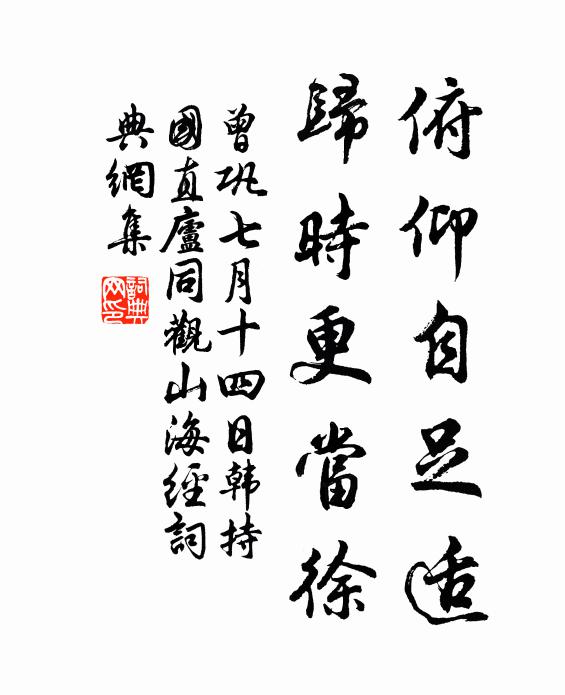 俯仰自足适
歸時更當徐
曾巩七月十四日韩持
國直廬同觀山海經詞
典網集
詞典
网印